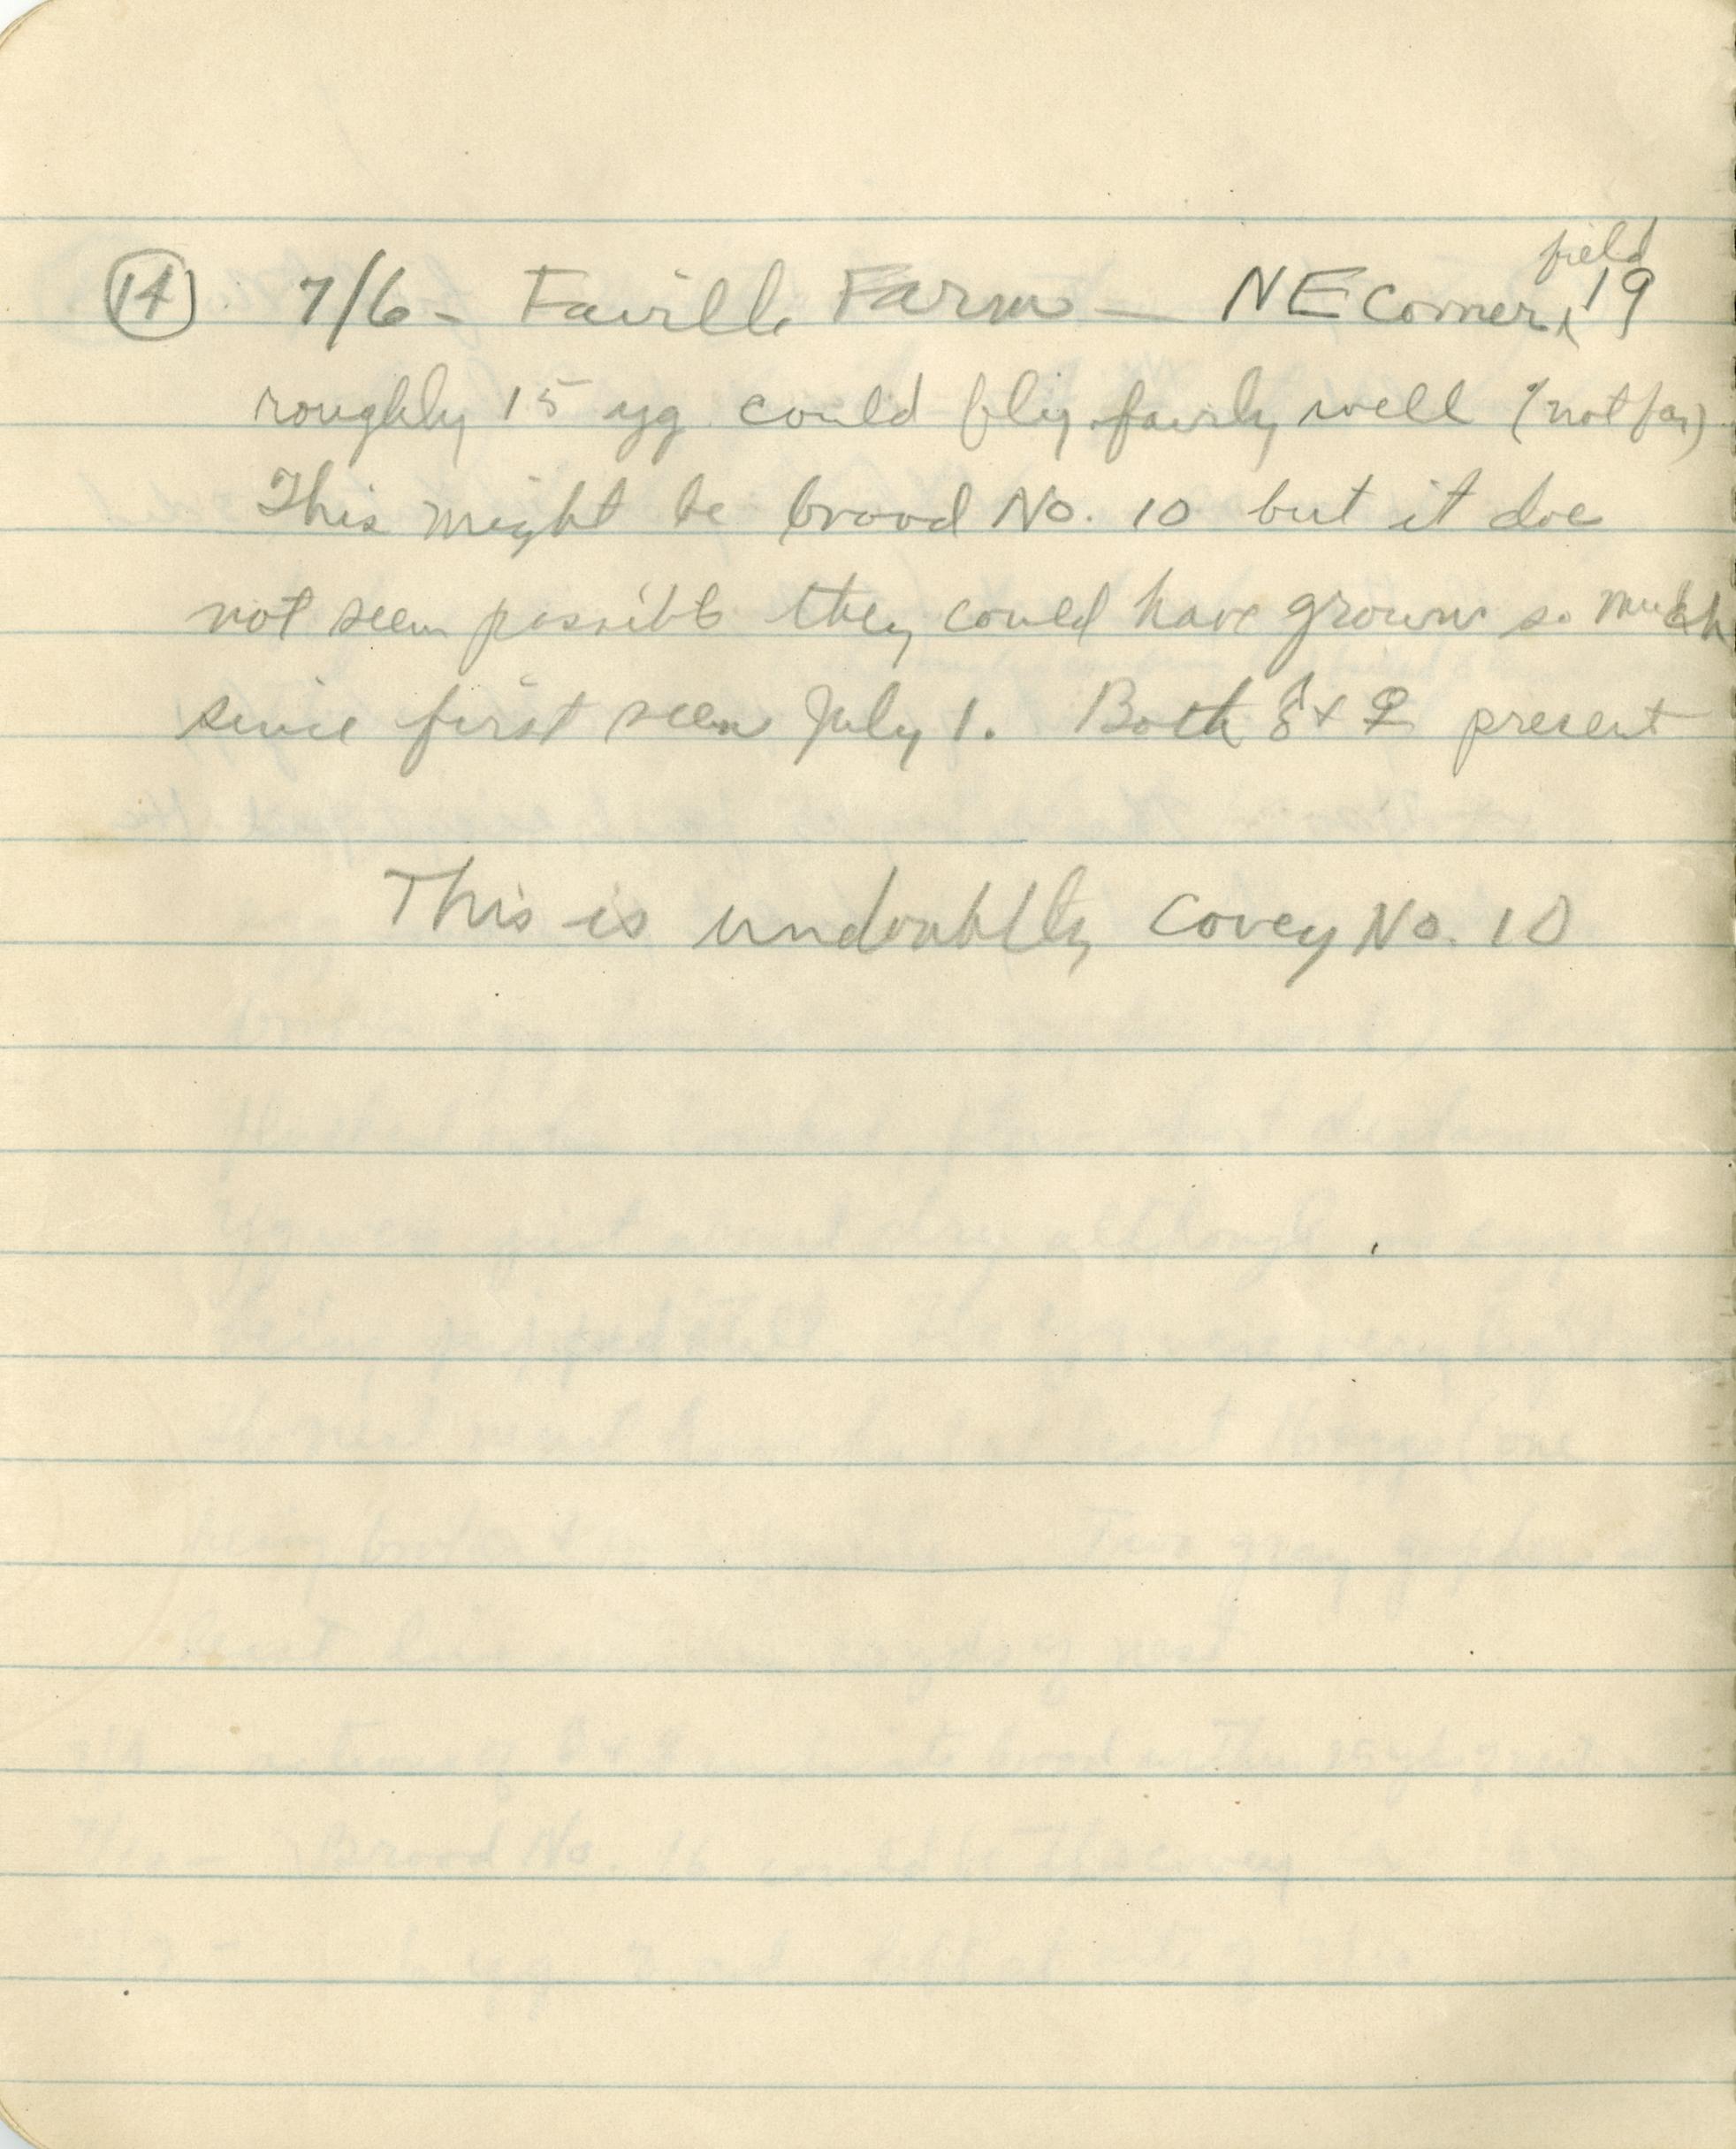 14 7/6 - Faville Farm - NE Corner field 19
roughly 15 yg could fly fairly well (not far)
This might be brood No. 10 but it doe
not seem possible they could have grown so much
since first seen July 1. Both ♂ + ♀ present
This is undoubtly Covey No. 10